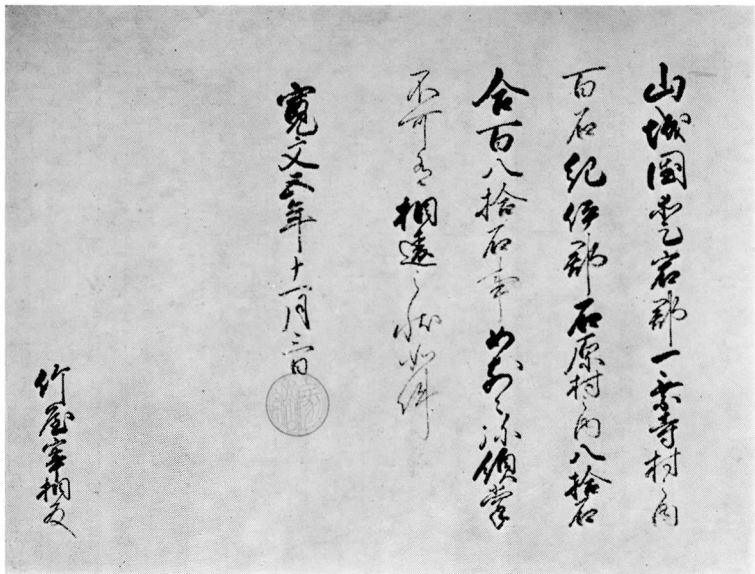 山城国愛宕郡一乗寺村之内
百石紀伊郡石原村之内八拾石
合百八拾石事如前々弥領掌
不可有相違之状如件
寛文五年十一月三日
竹屋宰相殿